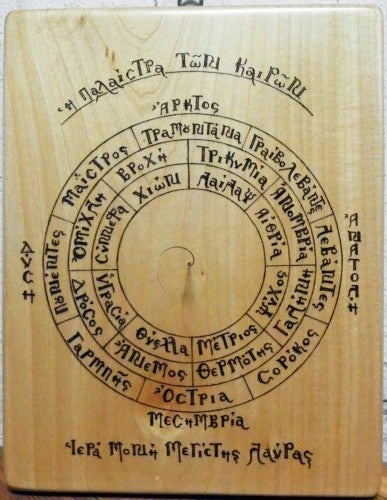 Ἡ Παλαίστρα Τῶν Καιρῶν
Ἄρκτος
Τραμουντάνα
Γραίβολεβάντε
Λεβάντες
Σορόκος
Ὄστρια
Γαρμπῆς
Πουνέντες
Μαΐστρος
Βροχή
Τρικυμία
Ἀνομβρία
Γαλήνη
Θερμότης
Ἄνεμος
Δρόσος
Ὁμίχλη
Χιών
Λαίλαψ
Αἰθρία
Ψύχος
Μέτριος
Θύελλα
Ὑγρασία
Σύννεφα
Ἀνατολή
Δύση
Μεσημβρία
Ἱερά Μονή Μεγίστης Λαύρας